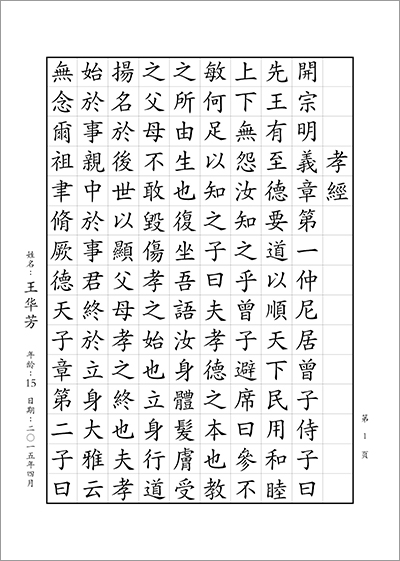 第 1 页
孝經
開宗明義章第一仲尼居曾子侍子曰
先王有至德要道以順天下民用和睦
上下無怨汝知之乎曾子避席曰參不
敏何足以知之子曰夫孝德之本也教
之所由生也復坐吾語汝身體髮膚受
之父母不敢毀傷孝之始也立身行道
揚名於後世以顯父母孝之終也夫孝
始於事親中於事君終於立身大雅云
無念爾祖聿脩厥德天子章第二子曰
姓名：王华芳 年龄：15 日期：二〇一五年四月